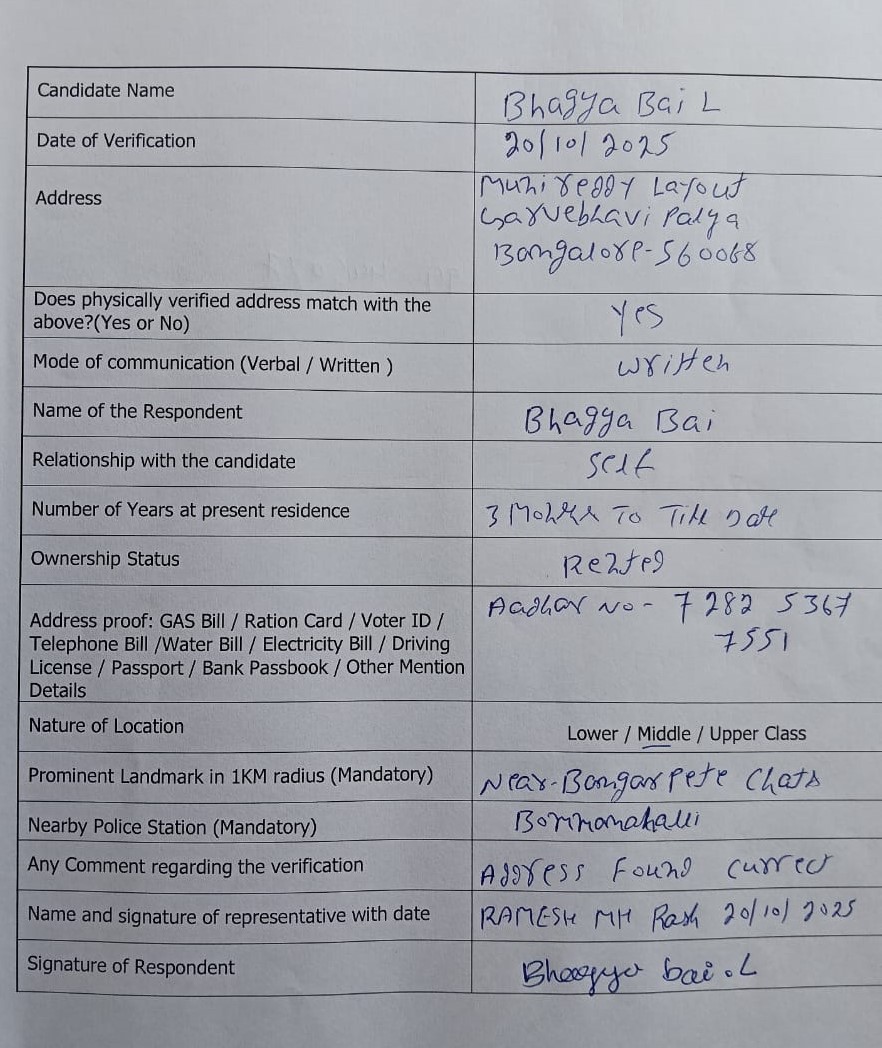 Candidate Name
Bhagya Bai L
Date of Verification
20/10/2025
Address
Muni reddy Layout
Garvebhavi Palya
Bangalore-560068
Does physically verified address match with the
above?(Yes or No)
Yes
Mode of communication (Verbal / Written )
written
Name of the Respondent
Bhagya Bai
Relationship with the candidate
Self
Number of Years at present residence
3 To Till Date
Ownership Status
Rented
Address proof: GAS Bill / Ration Card / Voter ID /
Telephone Bill /Water Bill / Electricity Bill / Driving
License / Passport / Bank Passbook / Other Mention
Details
Aadhar No - 7282 5367
7551
Nature of Location
Lower / Middle / Upper Class
Prominent Landmark in 1KM radius (Mandatory)
Near-Bangarpete Chats
Nearby Police Station (Mandatory)
Bommanahalli
Any Comment regarding the verification
Address Found currect
Name and signature of representative with date
RAMESH MH 20/10/2025
Signature of Respondent
Bhagya bai.L